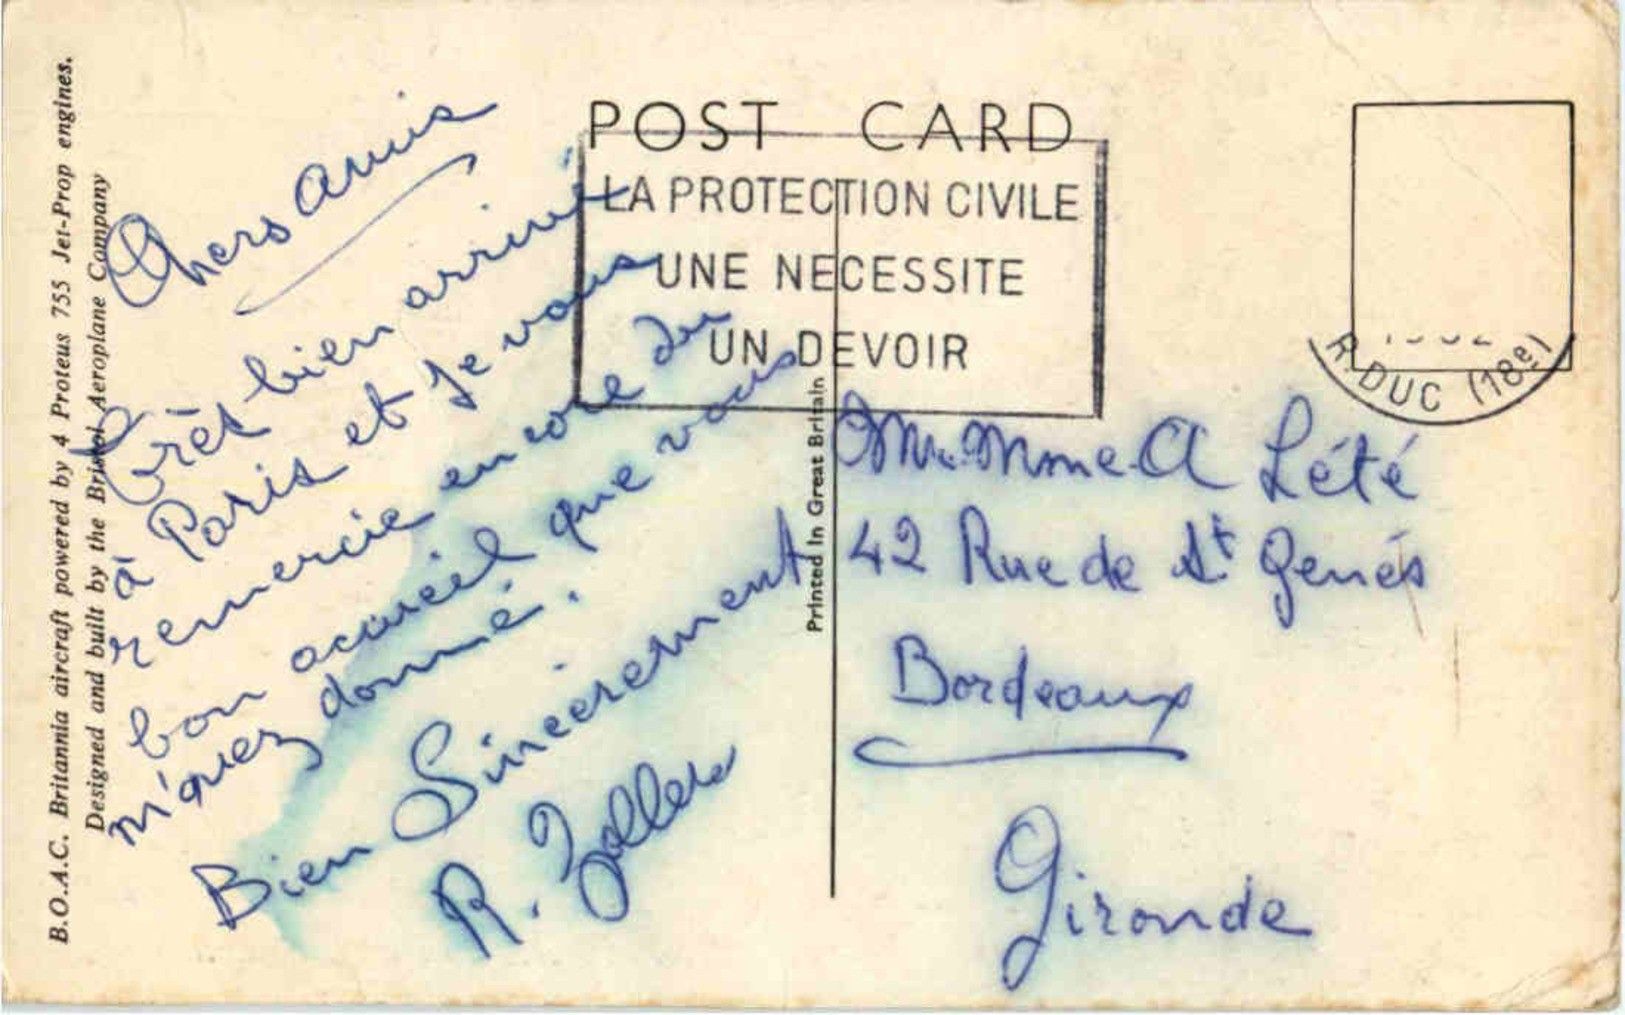 B.O.A.C. Britannia aircraft powered by 4 Proteus 755 Jet-Prop engines.
Designed and built by the Bristol Aeroplane Company
Chers amis
Très bien arrivé
à Paris et je vous
remercie encore du
bon acceuil que vous
m'avez donné.
Bien Sincèrement
R.
POST CARD
LA PROTECTION CIVILE
UNE NECESSITE
UN DEVOIR
R. DUC (18e)
Printed in Great Britain
Mr. Mme A Lété
42 Rue de St Genès
Bordeaux
Gironde